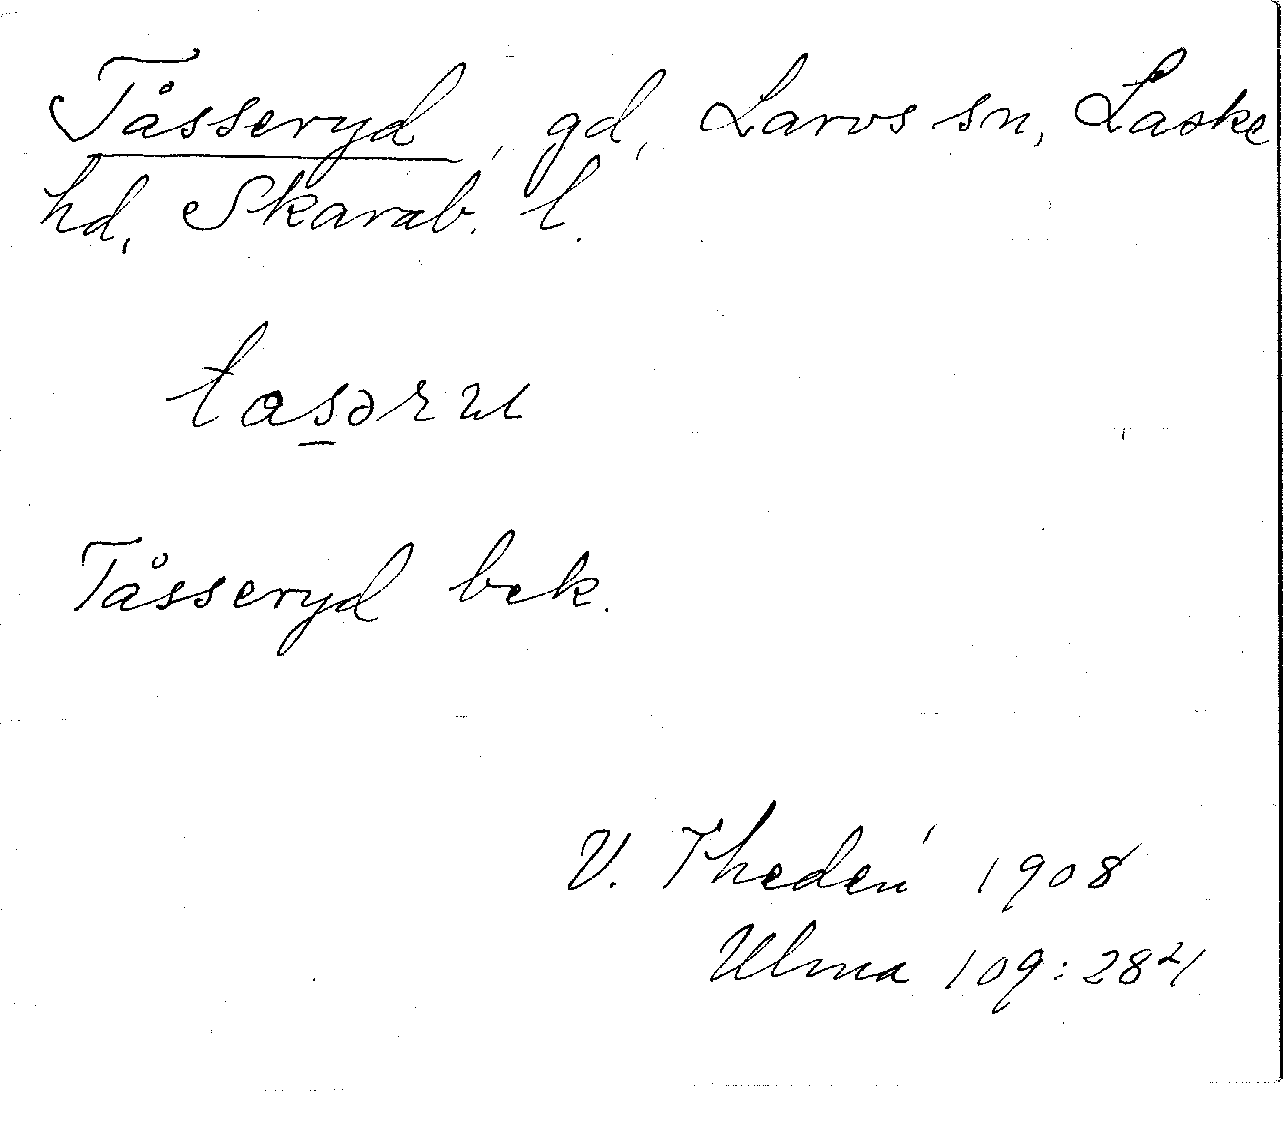 Tåsseryd, gd, Larvs sn, Laske
hd, Skarab. l.
tas̲əru
Tåsseryd bek.
V. Thedén 1908
Ulma 109:284